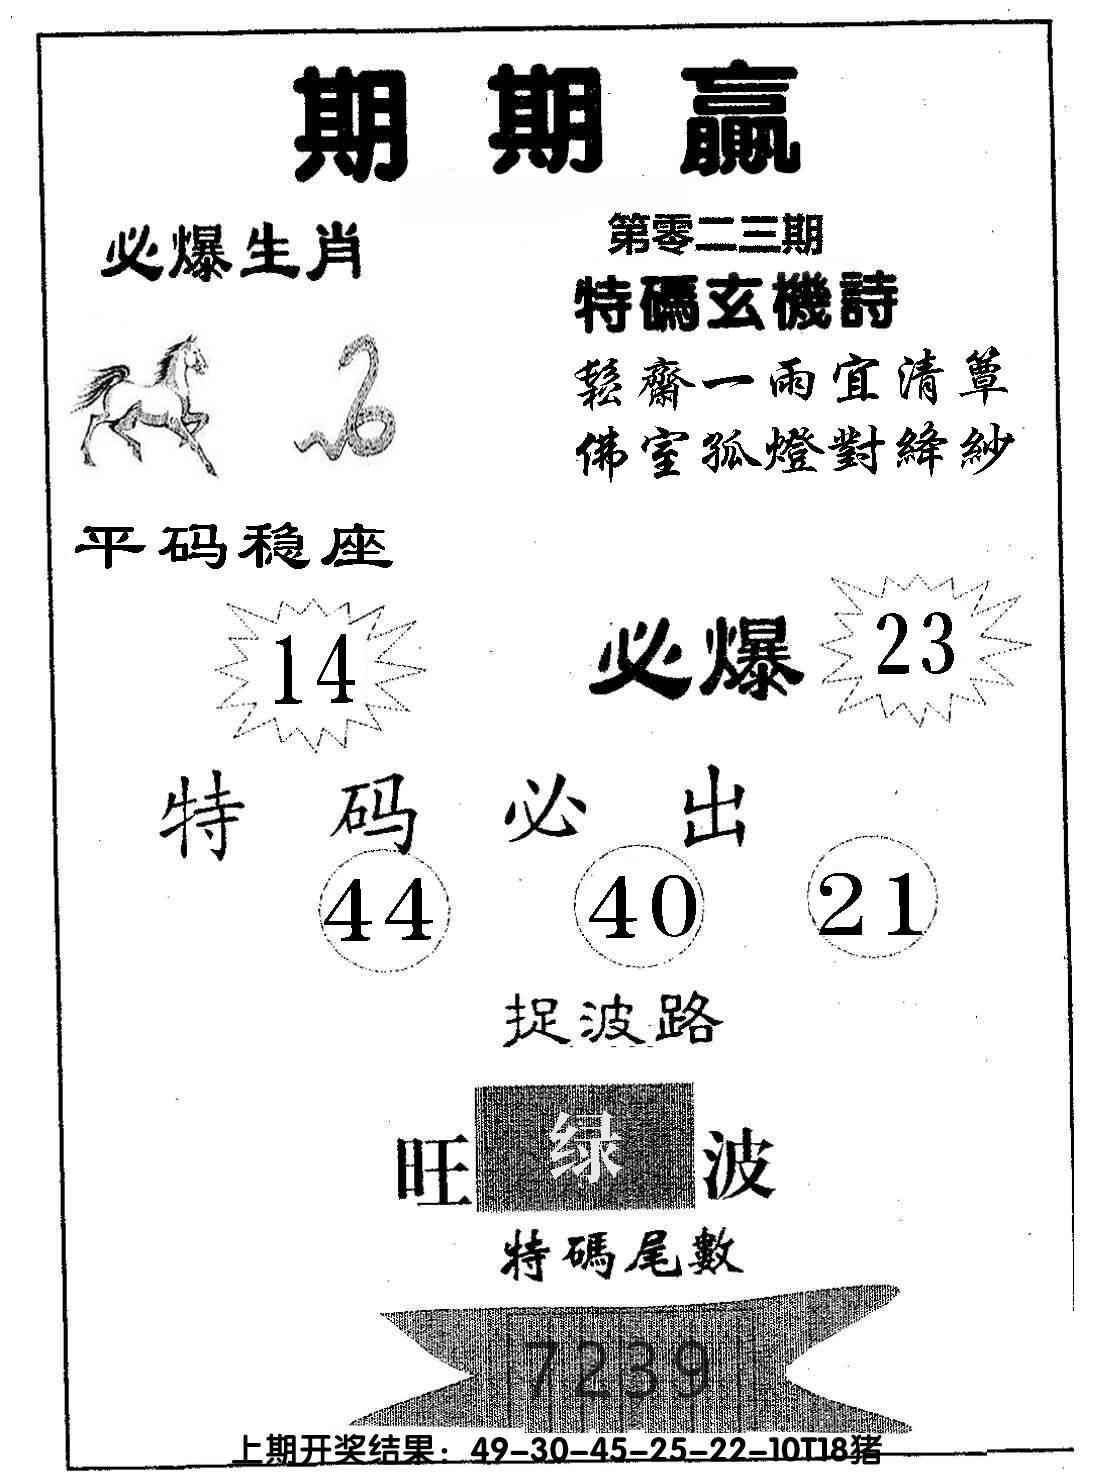 期期赢
必爆生肖
第零二三期
特碼玄機詩
鬆齋一雨宜清簟
佛室孤燈對絳紗
平码稳座
14
必爆
23
特码必出
44 40 21
捉波路
旺绿波
特碼尾數
7239
上期开奖结果：49-30-45-25-22-10T18猪